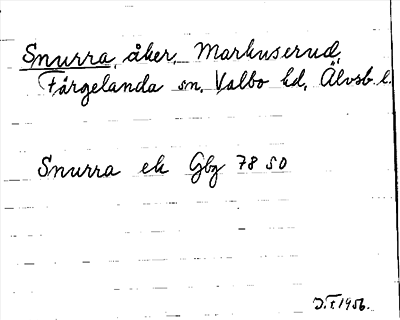 Snurra, åker, Markuserud,
Färgelanda sn, Valbo hd, Älvsb. l.
Snurra ek Gbg 78 50
D.F. 1956.